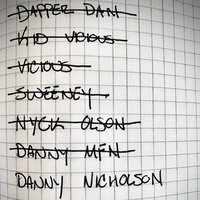 DAPPER DAN
KID VICIOUS
VICIOUS
SWEENEY
NYCK OLSON
DANNY MFN
DANNY NICHOLSON